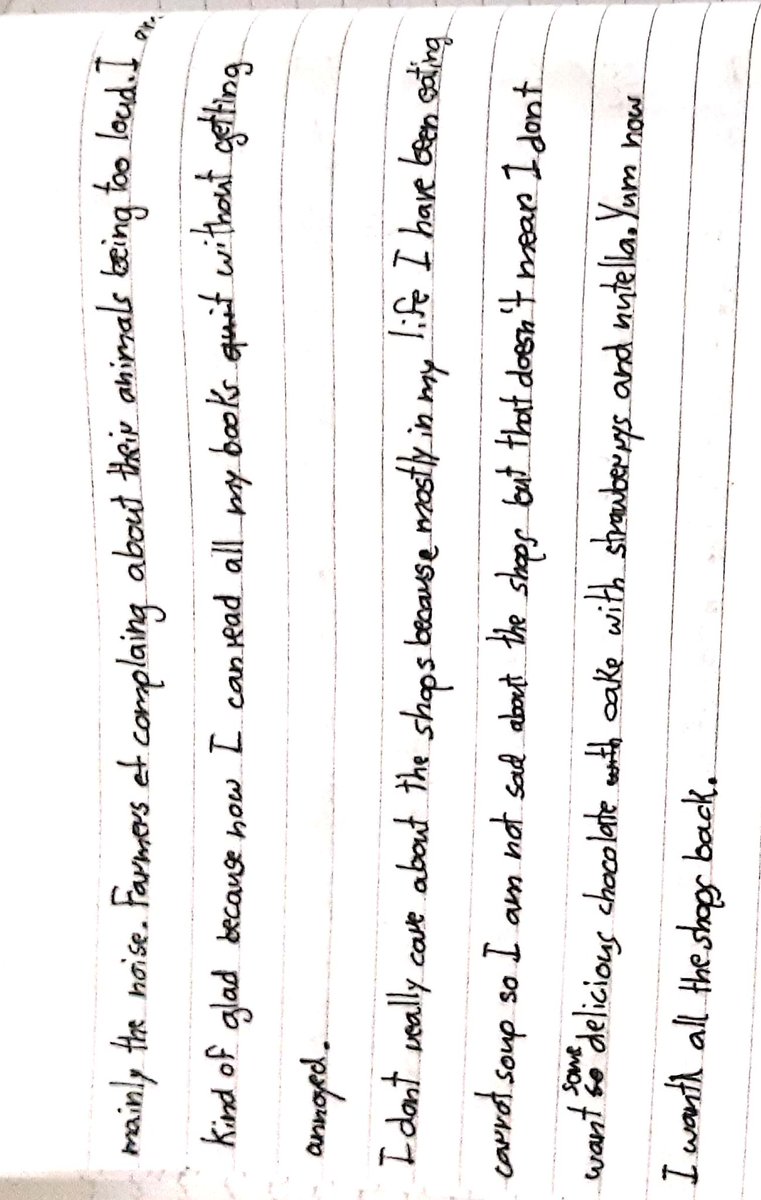 mainly the noise. Farmers et complaing about their animals being too loud. I
kind of glad because now I can read all my books quit without getting
annoyed.
I dont really care about the shops because mostly in my life I have been eating
carrot soup so I am not sad about the shops but that doesn't mean I dont
want so some delicious chocolate with cake with strawberrys and nutella. Yum now
I wantk all the shops back.